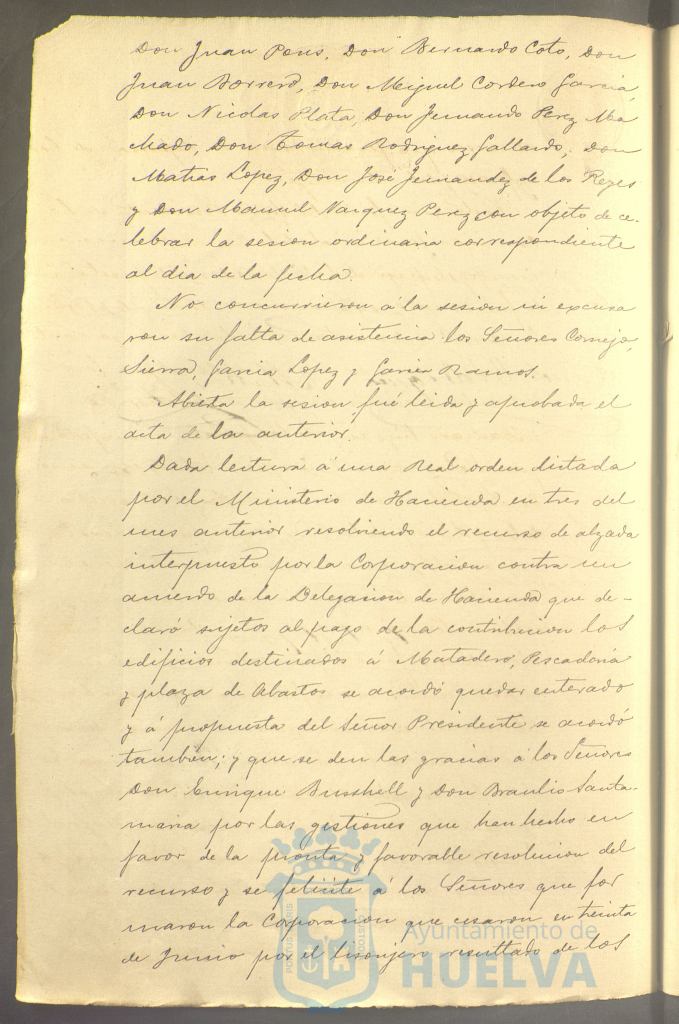 Don Juan Pons, Don Bernardo Coto, Don
Juan Borrero, Don Miguel Cordero Garcia,
Don Nicolas Plata, Don Fernando Perez Ma
chado, Don Tomas Rodriguez Gallardo, Don
Matias Lopez, Don José Fernandez de los Reyes
y Don Manuel Vazquez Perez con objeto de ce-
lebrar la sesion ordinaria correspondiente
al dia de la fecha.
No concurrieron á la sesion ni excusa
ron su falta de asistencia los Señores Cornejo,
Sierra, Garcia Lopez y Garcia Ramos.
Abierta la sesion fué leida y aprobada el
acta de la anterior.
Dada lectura á una Real orden dictada
por el Ministerio de Hacienda en tres del
mes anterior resolviendo el recurso de alzada
interpuesto por la Corporacion contra un
acuerdo de la Delegacion de Hacienda que de-
claró sujetos al pago de la contribucion los
edificios destinados á Matadero, Pescadería
y plaza de Abastos se acordó quedar enterado
y á propuesta del Señor Presidente se acordó
tambien; y que se den las gracias á los Señores
Don Enrique Busshell y Don Braulio Santa-
maria por las gestiones que han hecho en
favor de la pronta y favorable resolucion del
recurso y se felicite á los Señores que for
maron la Corporacion que cesaron en treinta
de Junio por el lisonjero resultado de los
Ayuntamiento de
HUELVA